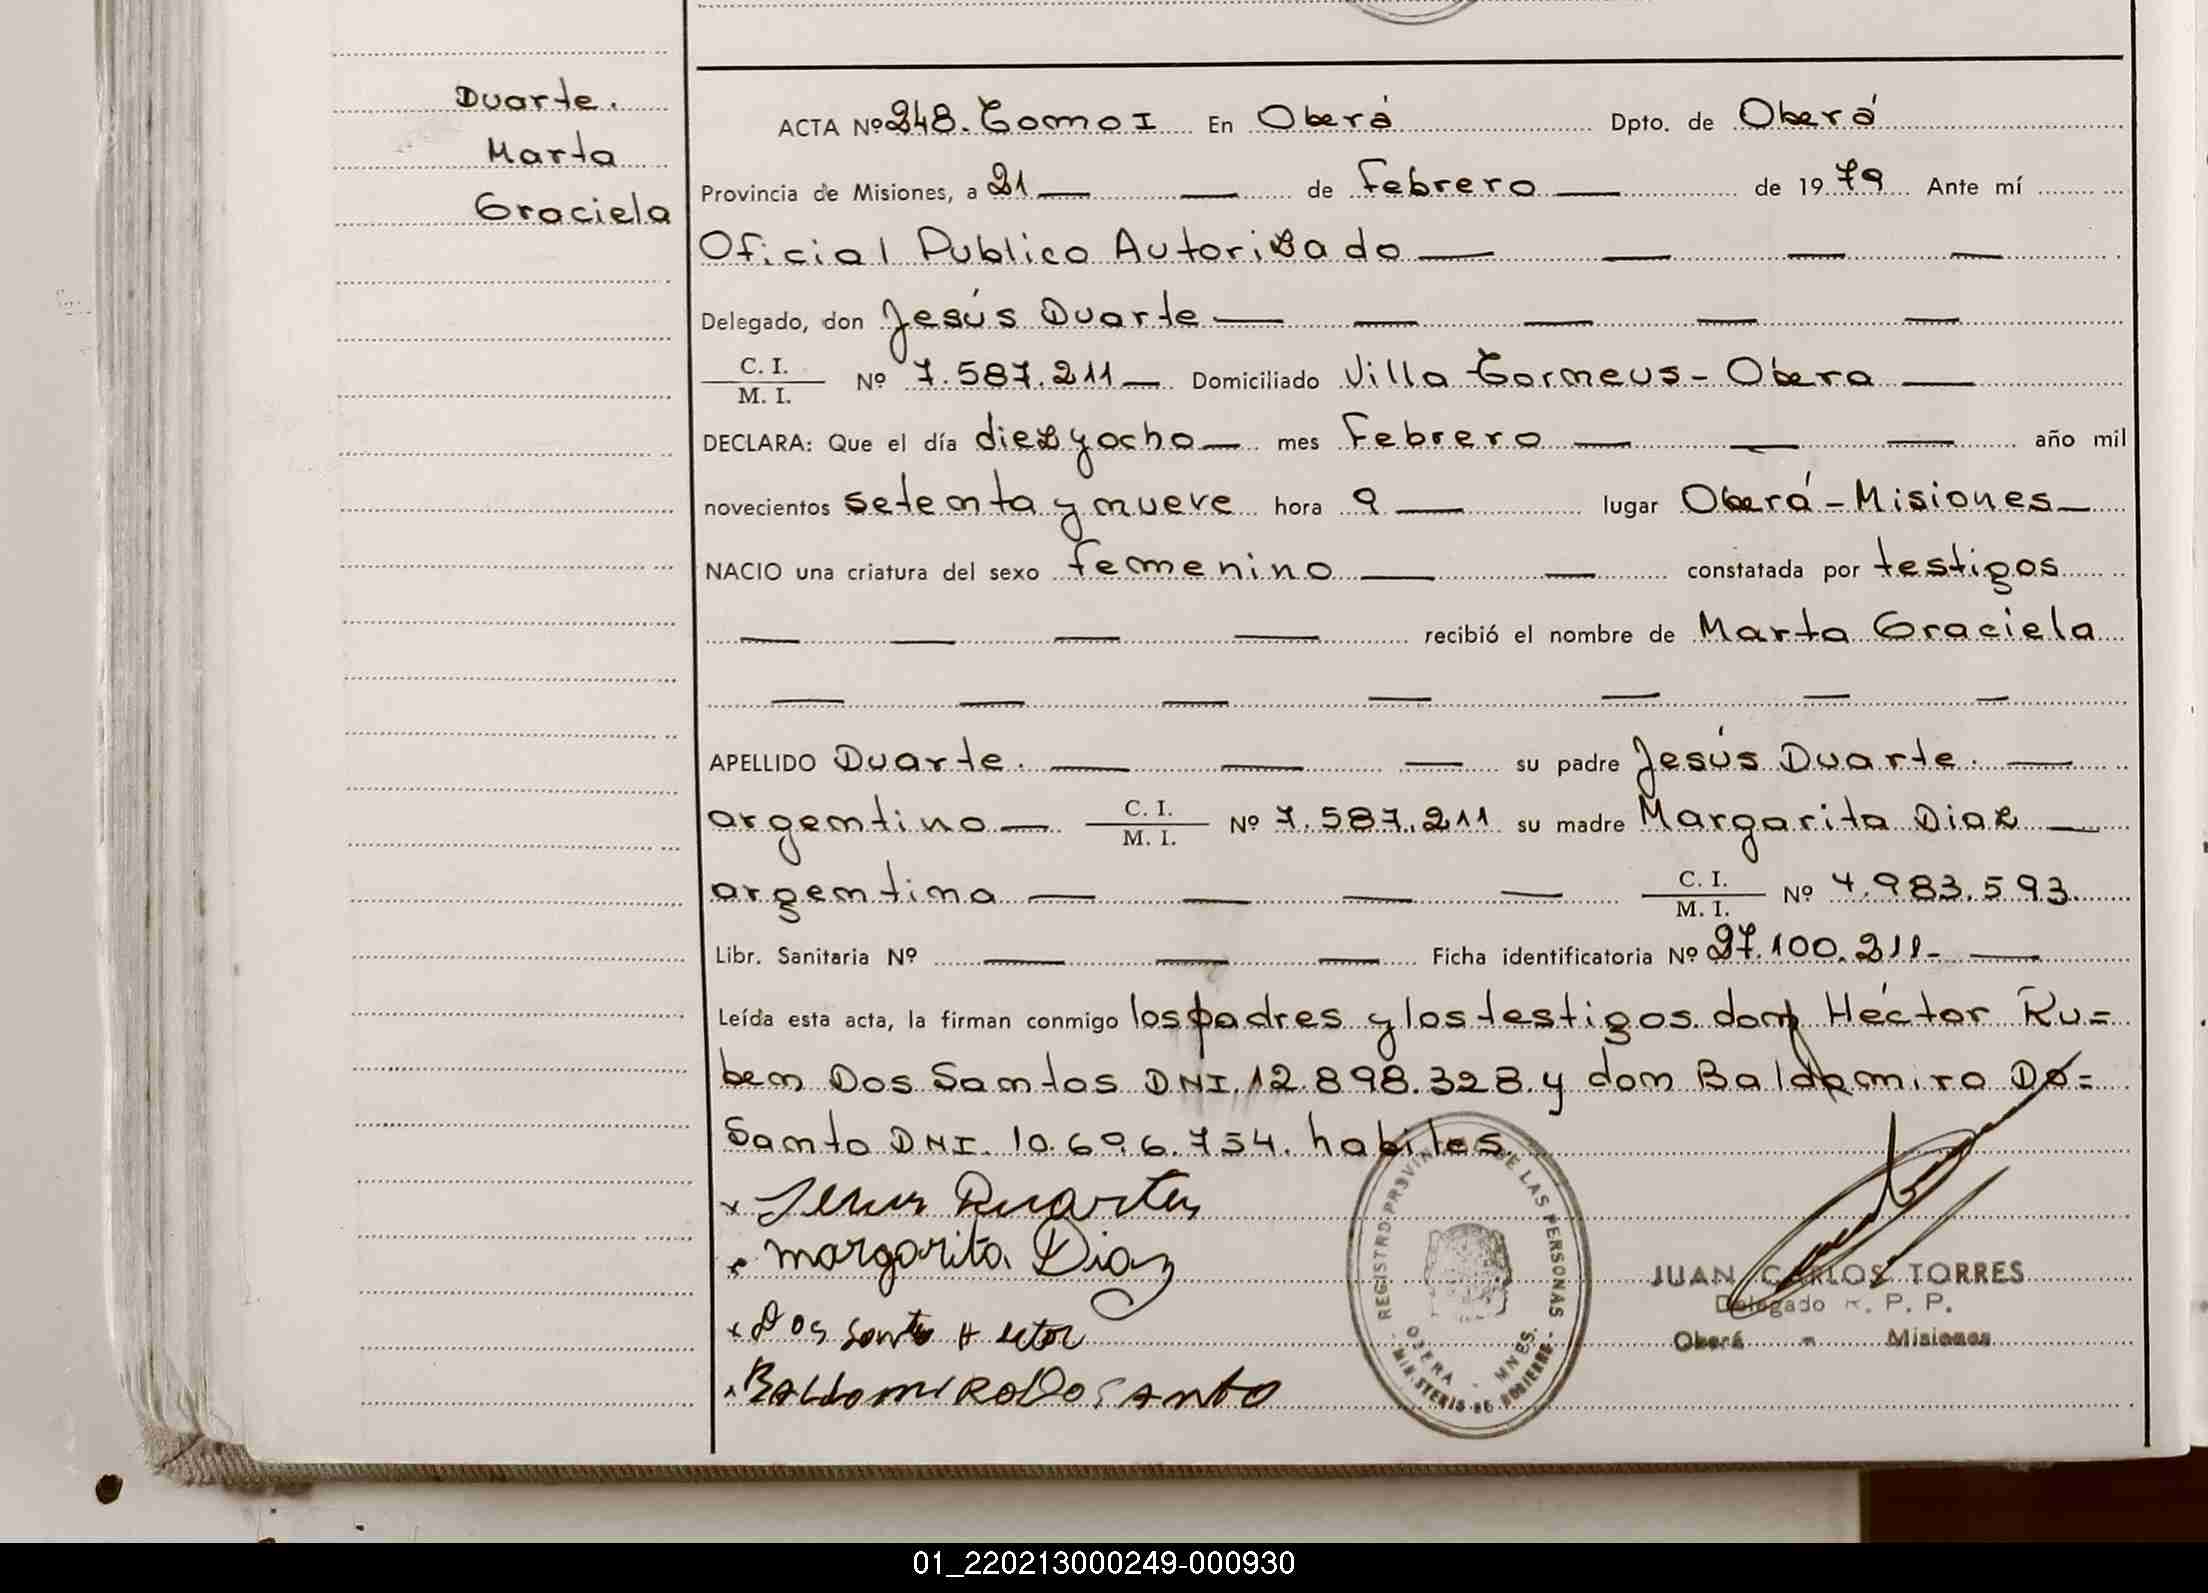 Duarte.
Marta
Graciela
ACTA Nº 248. Tomo I En Oberá Dpto. de Oberá
Provincia de Misiones, a 21 de Febrero de 1979 Ante mí
Oficial Publico Autorizado
Delegado, don Jesús Duarte
C. I.
M. I. Nº 7.587.211 Domiciliado Villa Tormeus - Obera
DECLARA: Que el día diezyocho mes Febrero año mil
novecientos setenta y nueve hora 9 lugar Oberá - Misiones
NACIO una criatura del sexo femenino constatada por testigos
recibió el nombre de Marta Graciela
APELLIDO Duarte. su padre Jesús Duarte.
argentino C. I.
M. I. Nº 7.587.211 su madre Margarita Diaz
argentina C. I.
M. I. Nº 4.983.593.
Libr. Sanitaria Nº Ficha identificatoria Nº 27.100.211-
Leída esta acta, la firman conmigo los padres y los testigos don Héctor Ru=
ben Dos Santos DNI. 12.898.328. y don Baldomiro Do=
Santo DNI. 10.696.754. habiles.
x Jesus Duartes
Margarita Diaz
x Dos Santo Hector
BALdOMIRO DO SANTO
REGISTRO PROVINCIAL DE LAS PERSONAS
OBERA - MNES.
MINISTERIO DE GOBIERNO
JUAN CARLOS TORRES
Delegado R. P. P.
Oberá - Misiones
01_220213000249-000930